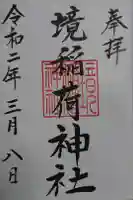 奉拝
境稲荷神社
令和二年三月八日